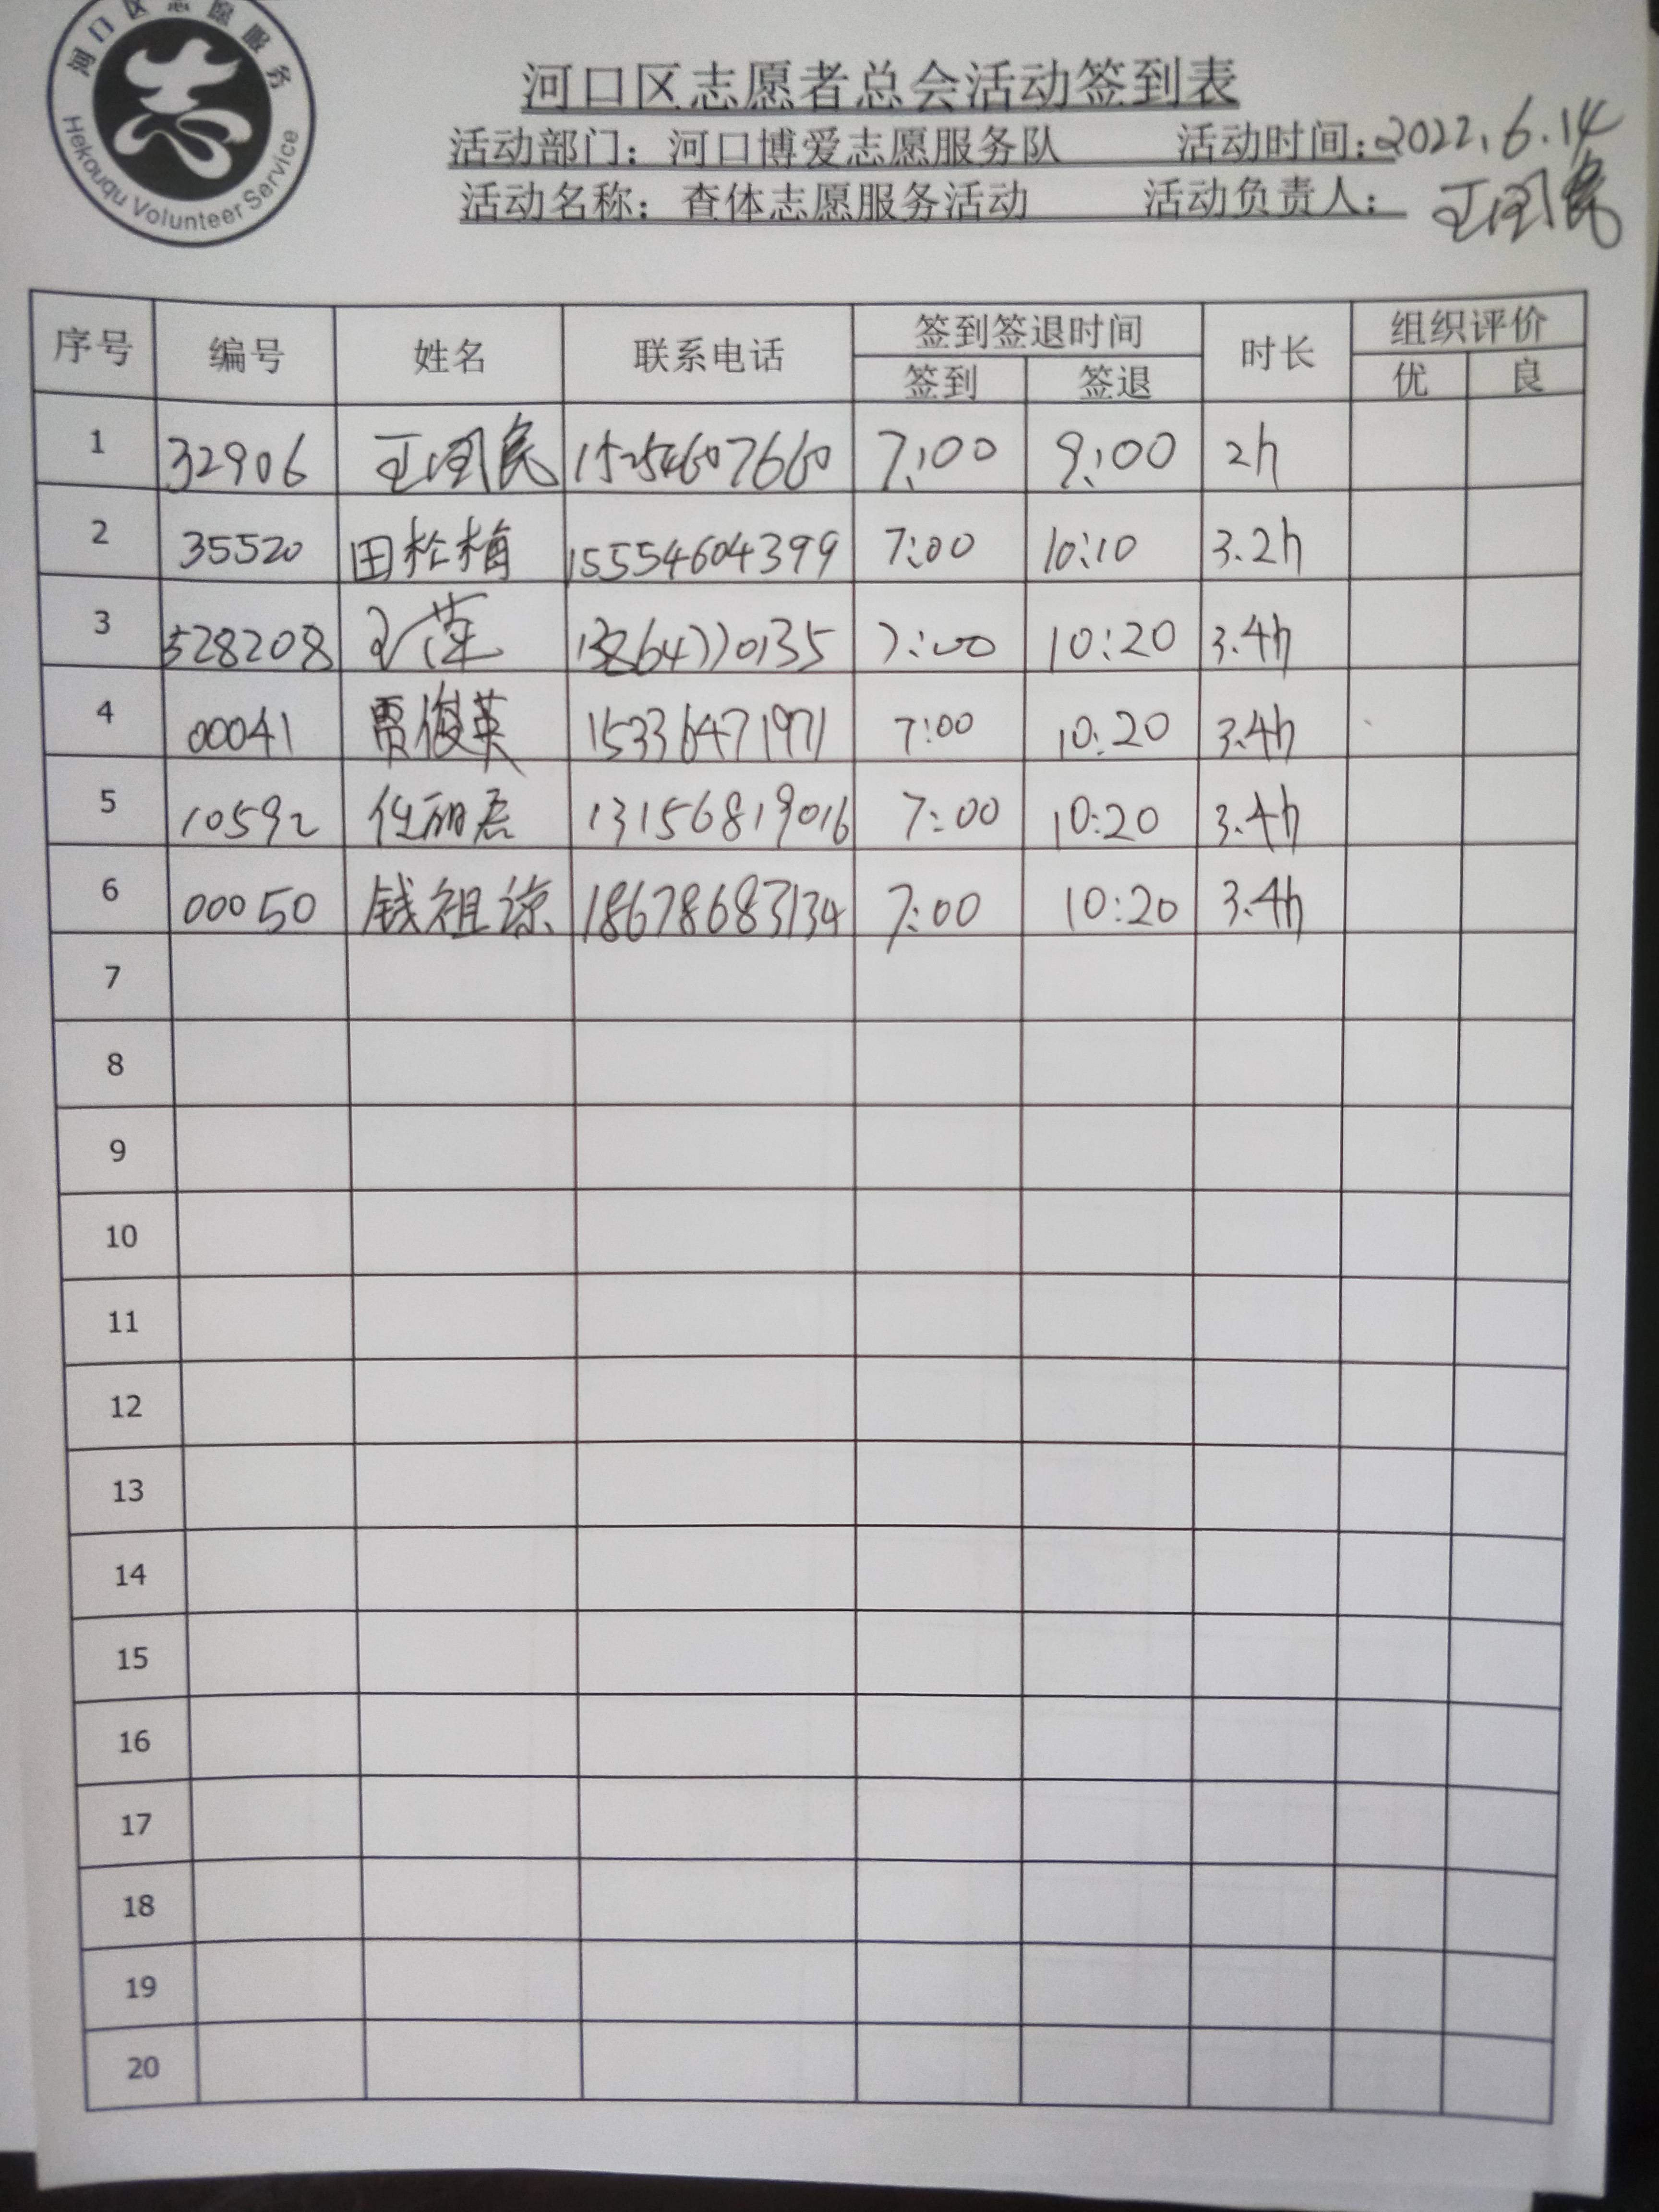 河口区志愿服务
Hekouqu Volunteer Service
河口区志愿者总会活动签到表
活动部门：河口博爱志愿服务队 活动时间：2022.6.14
活动名称：查体志愿服务活动 活动负责人：王国民
序号 编号 姓名 联系电话 签到签退时间 时长 组织评价
签到 签退 优 良
1 32906 王国民 15254607660 7:00 9:00 2h
2 35520 田松梅 15554604399 7:00 10:10 3.2h
3 528208 王萍 7:00 10:20 3.4h
4 00041 贾俊英 15336471971 7:00 10:20 3.4h
5 10592 任丽君 13156819016 7:00 10:20 3.4h
6 00050 钱祖谅 18678683134 7:00 10:20 3.4h
7
8
9
10
11
12
13
14
15
16
17
18
19
20